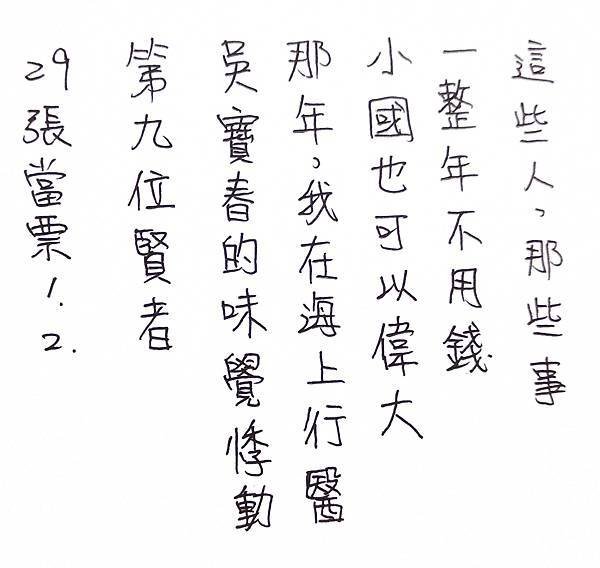 這些人，那些事
一整年不用錢
小國也可以偉大
那年，我在海上行醫
吳寶春的味覺悸動
第九位賢者
29張當票1.2.